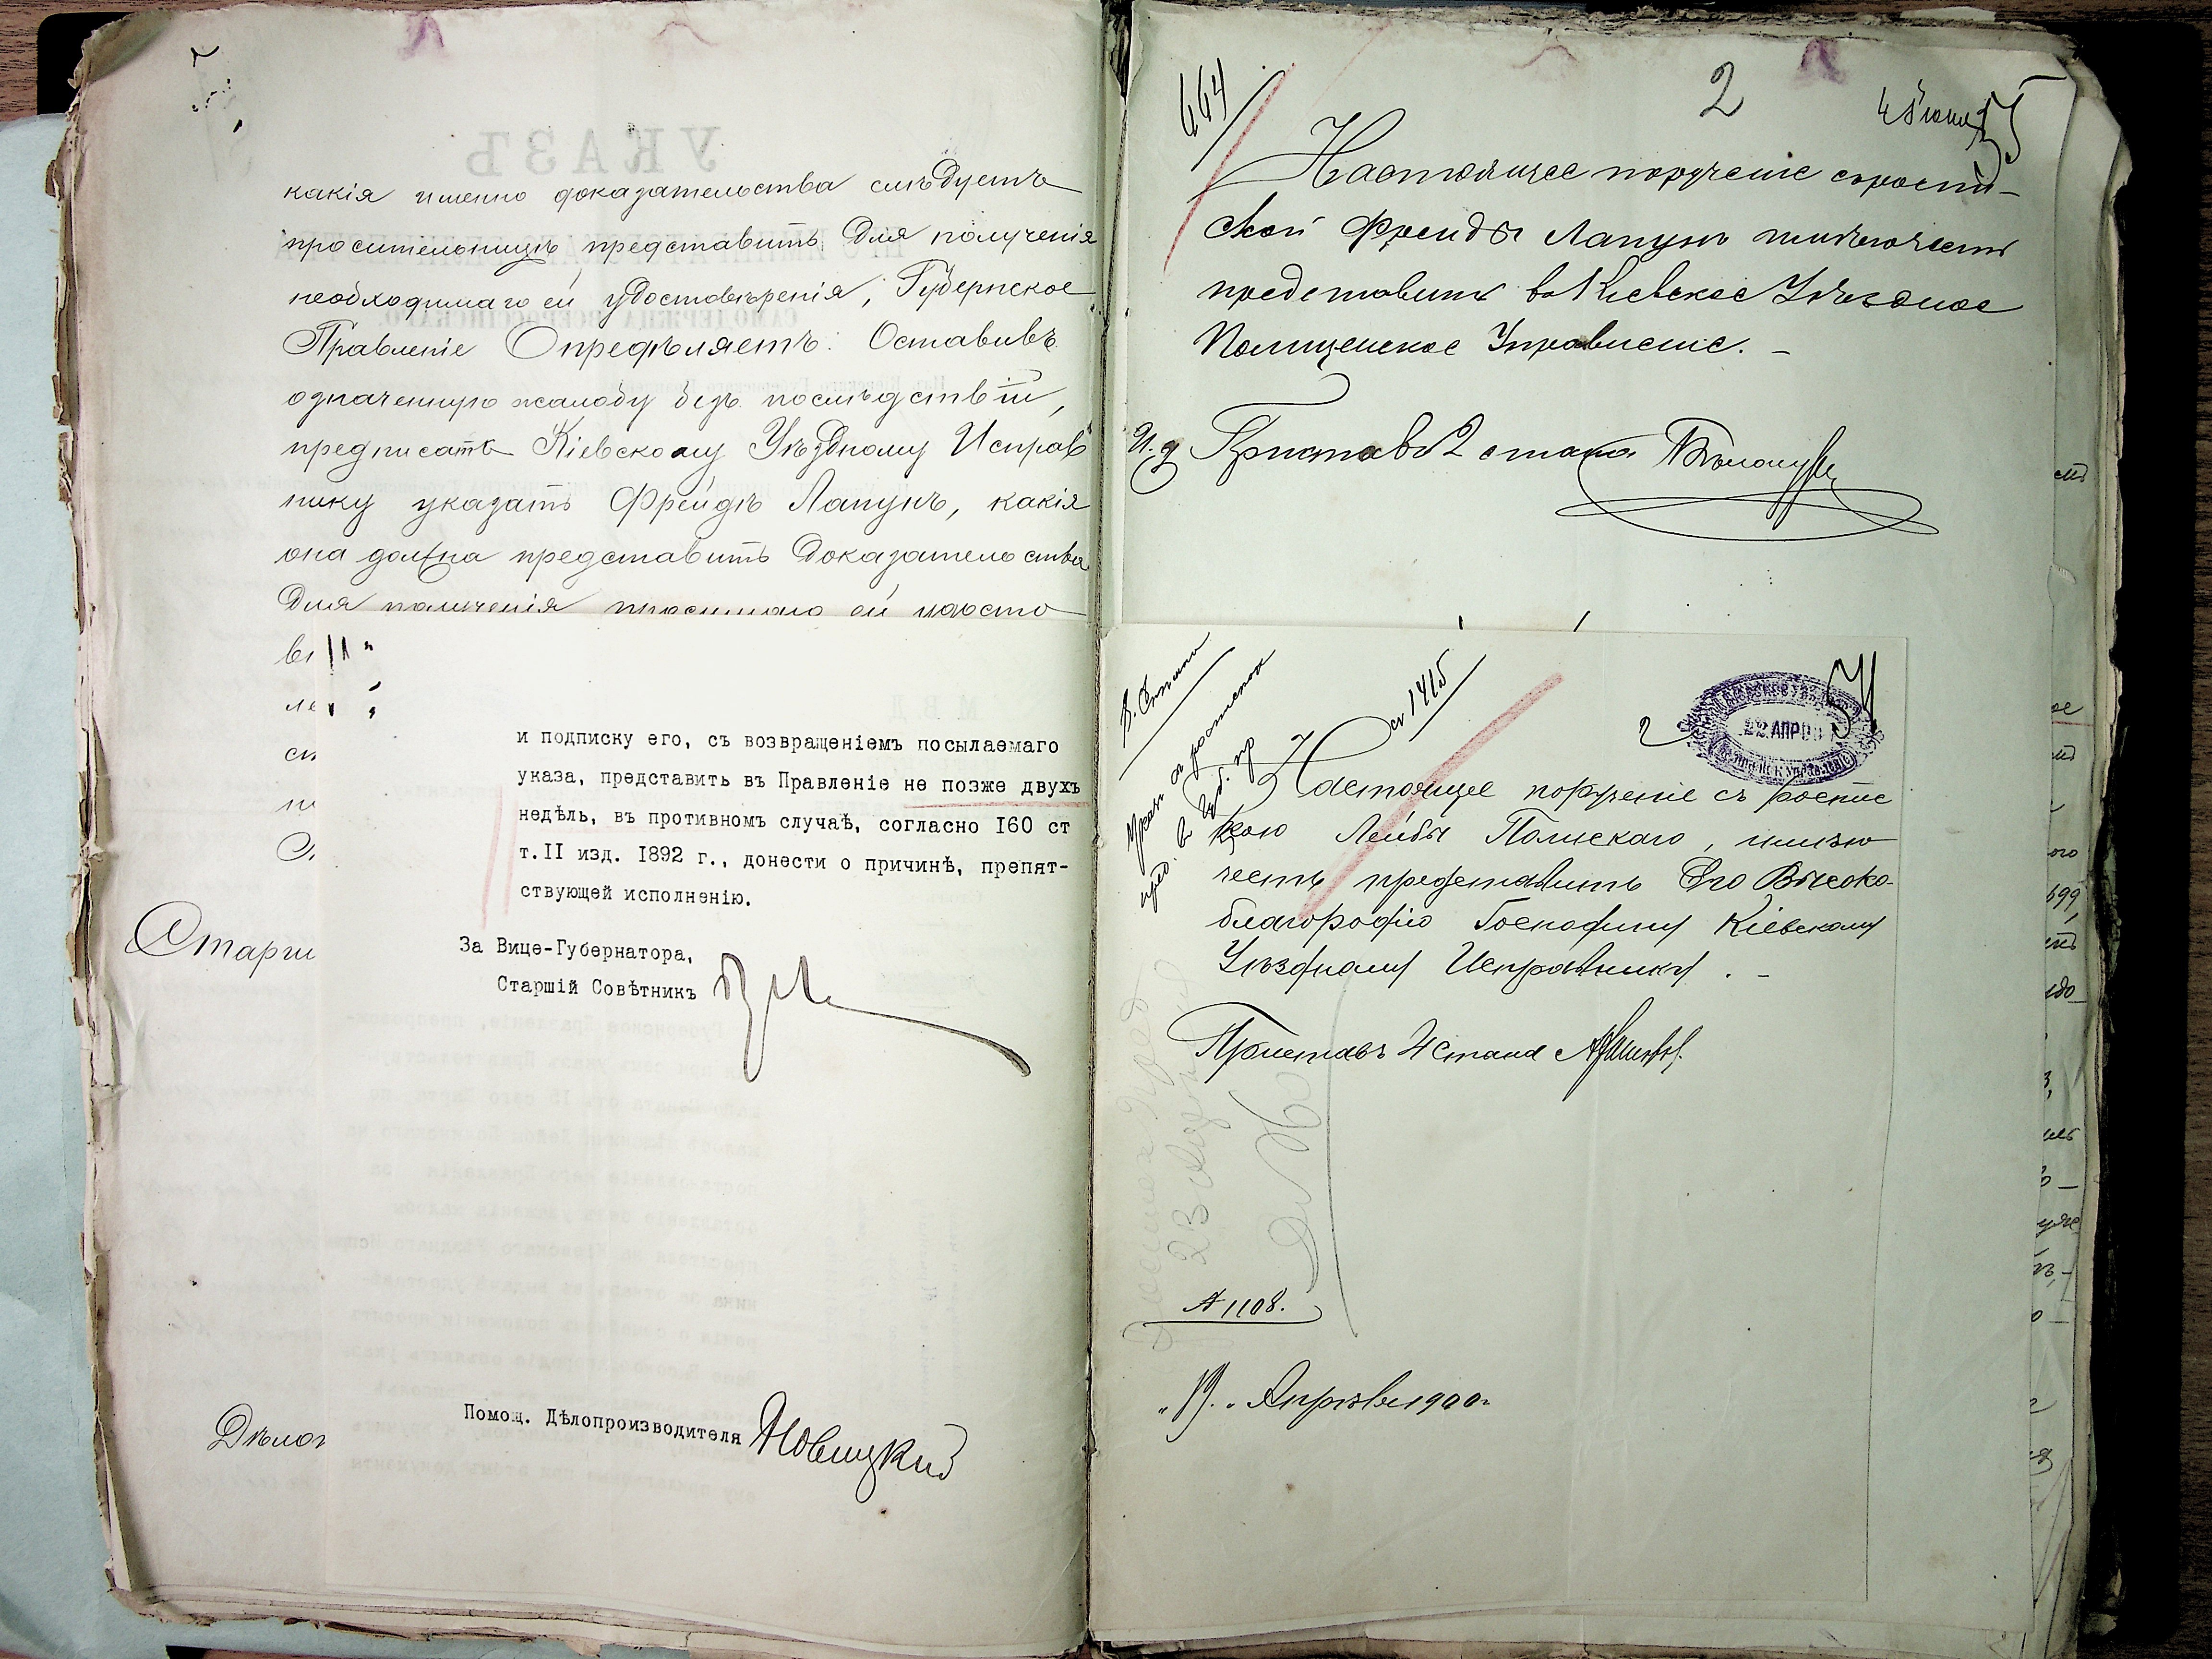 какія именно доказательства слѣдуетъ
просительницѣ представить для полученія
необходимаго ей удостовѣренія, Губернское
Правленіе Опредѣляетъ: Оставивъ
означенную жалобу безъ послѣдствій,
предписать Кіевскому Уѣздному Исправ
нику указать Фрейдѣ Лапунъ, какія
она должна представить доказательства
для полученія просимаго ей удосто
Старш
Дѣлоп
и подписку его, съ возвращеніемъ посылаемаго
указа, представить въ Правленіе не позже двухъ
недѣль, въ противномъ случаѣ, согласно 160 ст
т.II изд. 1892 г., донести о причинѣ, препят-
ствующей исполненію.
За Вице-Губернатора,
Старшій Совѣтникъ
Помощ. Дѣлопроизводителя Новицкий
664
2
Настоящее порученіе съ роспи-
ской Фрейды Лапунъ имѣю честь
представить въ Кіевское Уѣздное
Полицейское Управленіе. –
И.д. Пристава 2 стана
1415
2
34
22 АПР
Настоящее порученіе съ роспис
кою Лейбы Полискаго, имѣю
честь представить Его Высоко-
благородію Господину Кіевскому
Уѣздному Исправнику. –
Приставъ 4 стана
№ 1108.
"19." Апрѣля 1900 г.